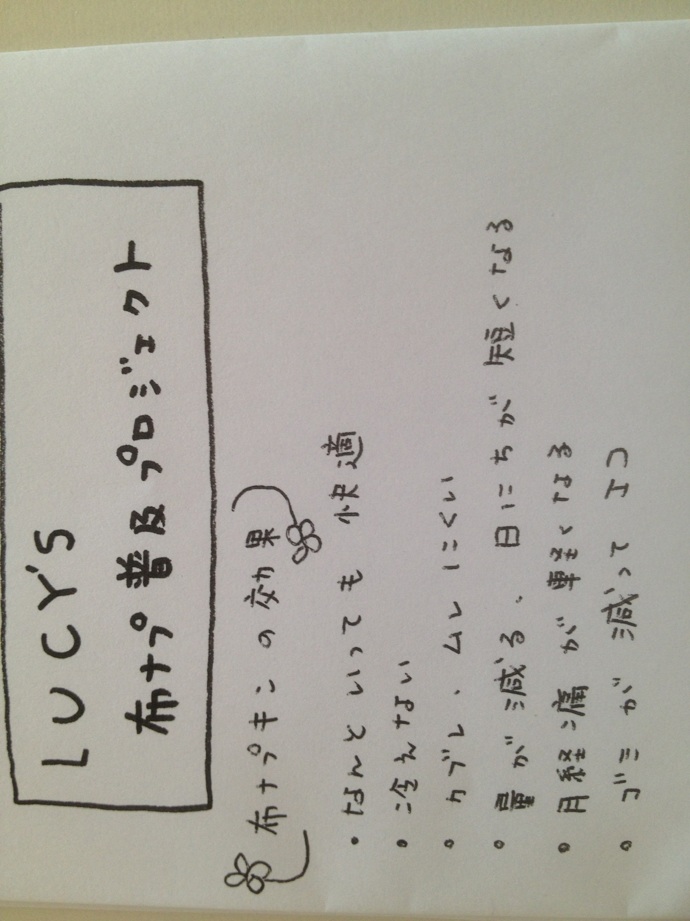 LUCY'S
布ナプ普及プロジェクト
布ナプキンの効果
・なんといっても 快適
・冷えない
・カブレ、ムレにくい
・量が減る、日にちが短くなる
・月経痛が軽くなる
・ゴミが減ってエコ